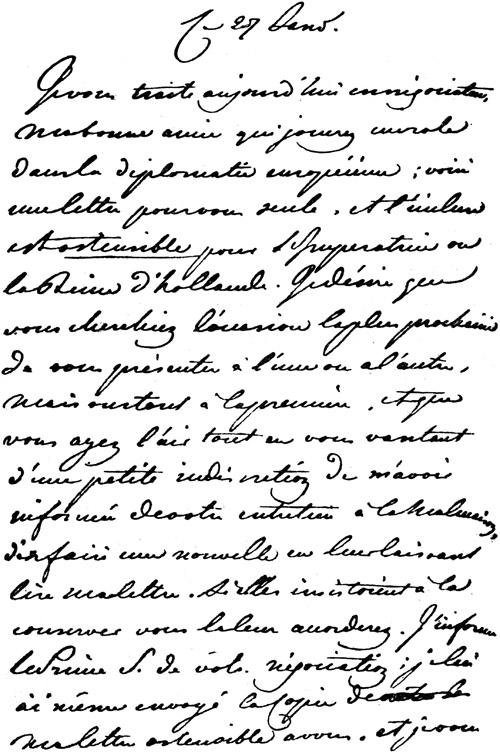 Ce 27 Janv.
Je vous traite aujourd'hui en négociateur,
ma bonne amie qui jouez un role
dans la diplomatie européenne ; voici
une lettre pour vous seule. Et l'incluse
est ostensible pour l'Imperatrice ou
la Reine d'hollande. Je désire que
vous cherchiez l'occasion la plus prochaine
de vous présenter à l'une ou a l'autre,
mais surtout à la première, et que
vous ayez l'air tout en vous vantant
d'une petite indiscrétion de m'avoir
informé de votre entretien à la Malmaison,
d'en faire une nouvelle en leur laissant
lire ma lettre. Si elles insistoient à la
conserver vous la leur accorderez. J'informe
le Prince S. de votr. négociation ; je lui
ai même envoyé la Copie de
ma lettre ostensible a vous. et je vous